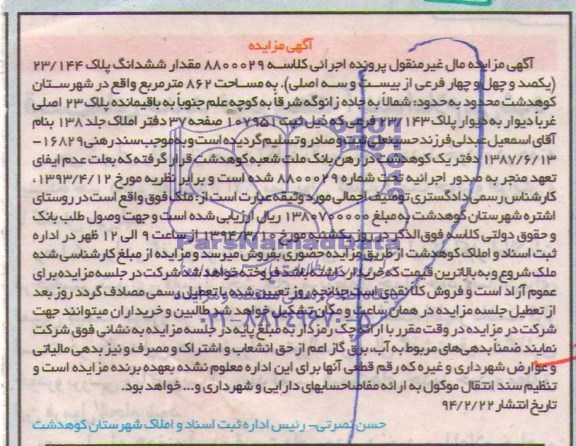 آگهی مزایده
آگهی مزایده مال غیرمنقول پرونده اجرائی کلاسه ۸۸۰۰۰۲۹ مقدار ششدانگ پلاک ۲۳/۱۴۴
(یکصد و چهل و چهار فرعی از بیست و سه اصلی). به مساحت ۸۶۲ مترمربع واقع در شهرستان
کوهدشت محدود به حدود: شمالاً به جاده زانوگه شرقا به کوچه علم جنوباً به باقیمانده پلاک ۲۳ اصلی
غرباً دیوار به دیوار پلاک ۲۳/۱۴۳ فرعی که ذیل ثبت ۱۰۷۹۵ صفحه ۳۷ دفتر املاک جلد ۱۳۸ بنام
آقای اسمعیل عبدلی فرزند حسینعلی ثبت و صادر و تسلیم گردیده است و به موجب سند رهنی ۱۶۸۲۹-
۱۳۸۷/۶/۱۳ دفتر یک کوهدشت در رهن بانک ملت شعبه کوهدشت قرار گرفته که بعلت عدم ایفای
تعهد منجر به صدور اجرائیه تحت شماره ۸۸۰۰۰۲۹ شده است و برابر نظریه مورخ ۱۳۹۳/۴/۱۲
کارشناس رسمی دادگستری توصیف اجمالی مورد وثیقه عبارت است از: ملک فوق واقع است در روستای
اشتره شهرستان کوهدشت به مبلغ ۱۳۸۰۷۰۰۰۰۰ ریال ارزیابی شده است و جهت وصول طلب بانک
و حقوق دولتی کلاسه فوق الذکر در روز یکشنبه مورخ ۱۳۹۴/۳/۱۰ از ساعت ۹ الی ۱۲ ظهر در اداره
ثبت اسناد و املاک کوهدشت از طریق مزایده حضوری بفروش میرسد و مزایده از مبلغ کارشناسی شده
ملک شروع و به بالاترین قیمت که خریدار داشته باشد فروخته خواهد شد شرکت در جلسه مزایده برای
عموم آزاد است و فروش کلا نقدی است چنانچه روز تعیین شده با تعطیل رسمی مصادف گردد روز بعد
از تعطیل جلسه مزایده در همان ساعت و مکان تشکیل خواهد شد طالبین و خریداران میتوانند جهت
شرکت در مزایده در وقت مقرر با ارائه چک رمزدار به مبلغ پایه در جلسه مزایده به نشانی فوق شرکت
نمایند ضمناً بدهی های مربوط به آب، برق گاز اعم از حق انشعاب و اشتراک و مصرف و نیز بدهی مالیاتی
و عوارض شهرداری و غیره که رقم قطعی آنها برای این اداره معلوم نشده بعهده برنده مزایده است و
تنظیم سند انتقال موکول به ارائه مفاصاحسابهای دارایی و شهرداری و... خواهد بود.
تاریخ انتشار ۹۴/۲/۲۲
حسن نصرتی- رئیس اداره ثبت اسناد و املاک شهرستان کوهدشت
ParsNamadData